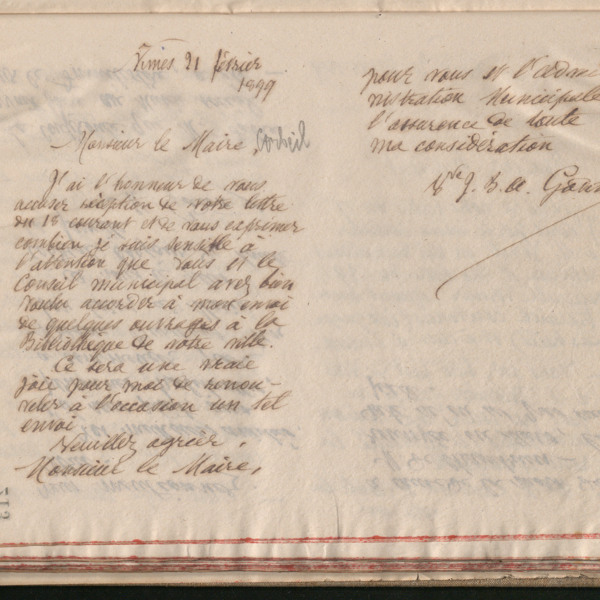 Nîmes 21 février
1899
Monsieur le Maire, Corbeil
J'ai l'honneur de vous
accuser réception de votre lettre
du 18 courant et de vous exprimer
combien je suis sensible à
l'attention que vous et le
Conseil municipal avez bien
voulu accorder à mon envoi
de quelques ouvrages à la
Bibliothèque de votre ville.
Ce sera une vraie
joie pour moi de renou-
veler à l'occasion un tel
envoi
Veuillez agréer,
Monsieur le Maire,
pour vous et l'admi
nistration Municipale
l'assurance de toute
ma considération
Vve J. B. A.